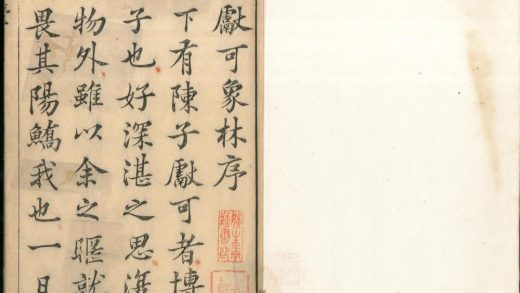 獻可象林序
下有陳子獻可者博
子也好深湛之思
物外雖以余之暱就
畏其陽鱎我也一日